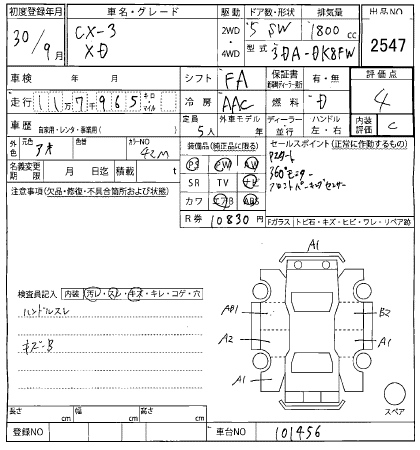 初度登録年月 車名・グレード 駆動 ドア数・形状 排気量 出品NO
30/9月 CX-3 XD 2WD・4WD 5 SW 1800cc 2547
型式 3DA-DK8FW
車検 年 月 シフト FA 保証書 有・無 評価点
走行 117965 キロ・マイル 冷房 AAC 燃料 D 4
車歴 自家用・レンタ・事業用( ) 定員 5人 外車モデル 年 ディーラー 並行 ハンドル 左・右 内装評価 C
外色 元色 色替 カラーNO 42M
名義変更期限 月 日 積載 t
装備品(純正品に限る) セールスポイント(正常に作動するもの)
PS PW AW
SR TV ナビ
カワ エアB ABS
360°モニター
注意事項(欠品・修復・不具合箇所および状態)
R券 10830円 Fガラス トビ石・キズ・ヒビ・ワレ・リペア跡
A1
検査員記入 内装 汚レ・スレ・キズ・キレ・コゲ・穴
ハンドルスレ
キズ・B
AP1 B2
A2 A1
A1
スペア
長さ cm 幅 cm 高さ cm
登録NO 車台NO 101456